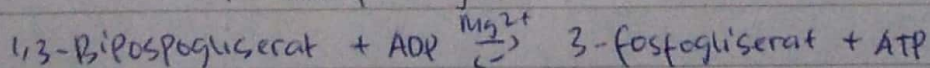 1,3-Bipospogliserat + ADP Mg2+ ⇌ 3-fosfogliserat + ATP